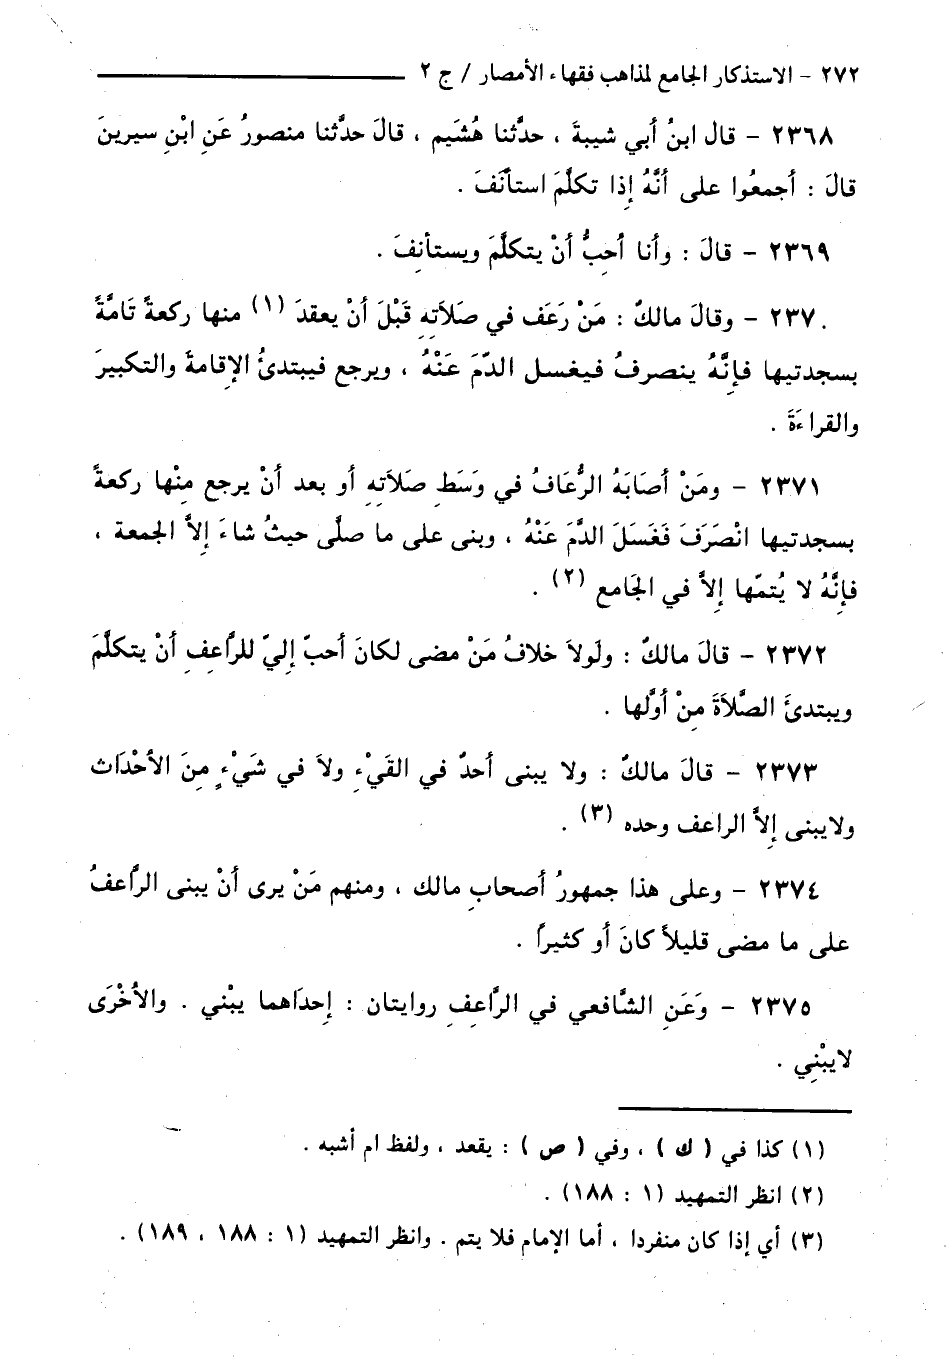 ٢٧٢ - الاستذكار الجامع لمذاهب فقهاء الأمصار / ج ٢
٢٣٦٨ - قال ابنُ أبي شيبةَ ، حدثنا هُشَيم ، قالَ حدَّثنا منصورُ عَنِ ابْنِ سيرينَ
قالَ : أجمعُوا على أنَّهُ إِذا تكلَّمَ استأنَفَ .
٢٣٦٩ - قالَ : وأنا أحِبُّ أنْ يتكلَّمَ ويستأنِفَ .
٢٣٧٠ - وقالَ مالكٌ : مَنْ رَعَف في صَلاَتِهِ قَبْلَ أنْ يعقدَ (١) منها ركعةً تَامَّةً
بسجدتيها فإِنَّهُ ينصرفُ فيغسل الدَّمَ عَنْهُ ، ويرجع فيبتدئُ الإِقامةَ والتكبيرَ
والقراءَةَ .
٢٣٧١ - ومَنْ أصَابَهُ الرُّعَافُ في وَسَطِ صَلاَتِهِ أو بعد أنْ يرجع مِنْها ركعةً
بسجدتيها انْصَرَفَ فَغَسَلَ الدَّمَ عَنْهُ ، وبنى على ما صلَّى حيثُ شاءَ إِلاَّ الجمعة ،
فإِنَّهُ لا يُتمّها إِلاَّ في الجَامع (٢) .
٢٣٧٢ - قالَ مالكٌ : ولَولاَ خلافُ مَنْ مضى لكانَ أحبّ إِليّ للرَّاعِفِ أنْ يتكلَّمَ
ويبتدئَ الصَّلاَةَ مِنْ أوَّلها .
٢٣٧٣ - قالَ مالكٌ : ولا يبنى أحدٌ في القَيْءِ ولاَ في شَيْءٍ مِنَ الأحْدَاث
ولايبنى إِلاَّ الراعف وحده (٣) .
٢٣٧٤ - وعلى هذا جمهورُ أصحابِ مالك ، ومنهم مَنْ يرى أنْ يبنى الرَّاعفُ
على ما مضى قليلاً كانَ أو كثيراً .
٢٣٧٥ - وَعَنِ الشَّافعي في الرَّاعِفِ روايتان : إِحدَاهما يبْني . والأخْرَى
لايبْنِي .
(١) كذا في ( ك ) ، وفي ( ص ) : يقعد ، ولفظ ام أشبه .
(٢) انظر التمهيد (١ : ١٨٨) .
(٣) أي إذا كان منفردا ، أما الإمام فلا يتم . وانظر التمهيد (١ : ١٨٨ ، ١٨٩) .